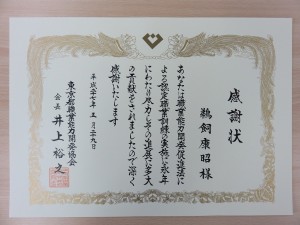 感謝状
鵜飼康昭様
あなたは職業能力開発促進法に
よる認定職業訓練の実施に永年
にわたり尽力しその進展に多大
の貢献をされましたので深く
感謝いたします
平成二十七年 五月二十九日
東京都職業能力開発協会
会長 井上裕之